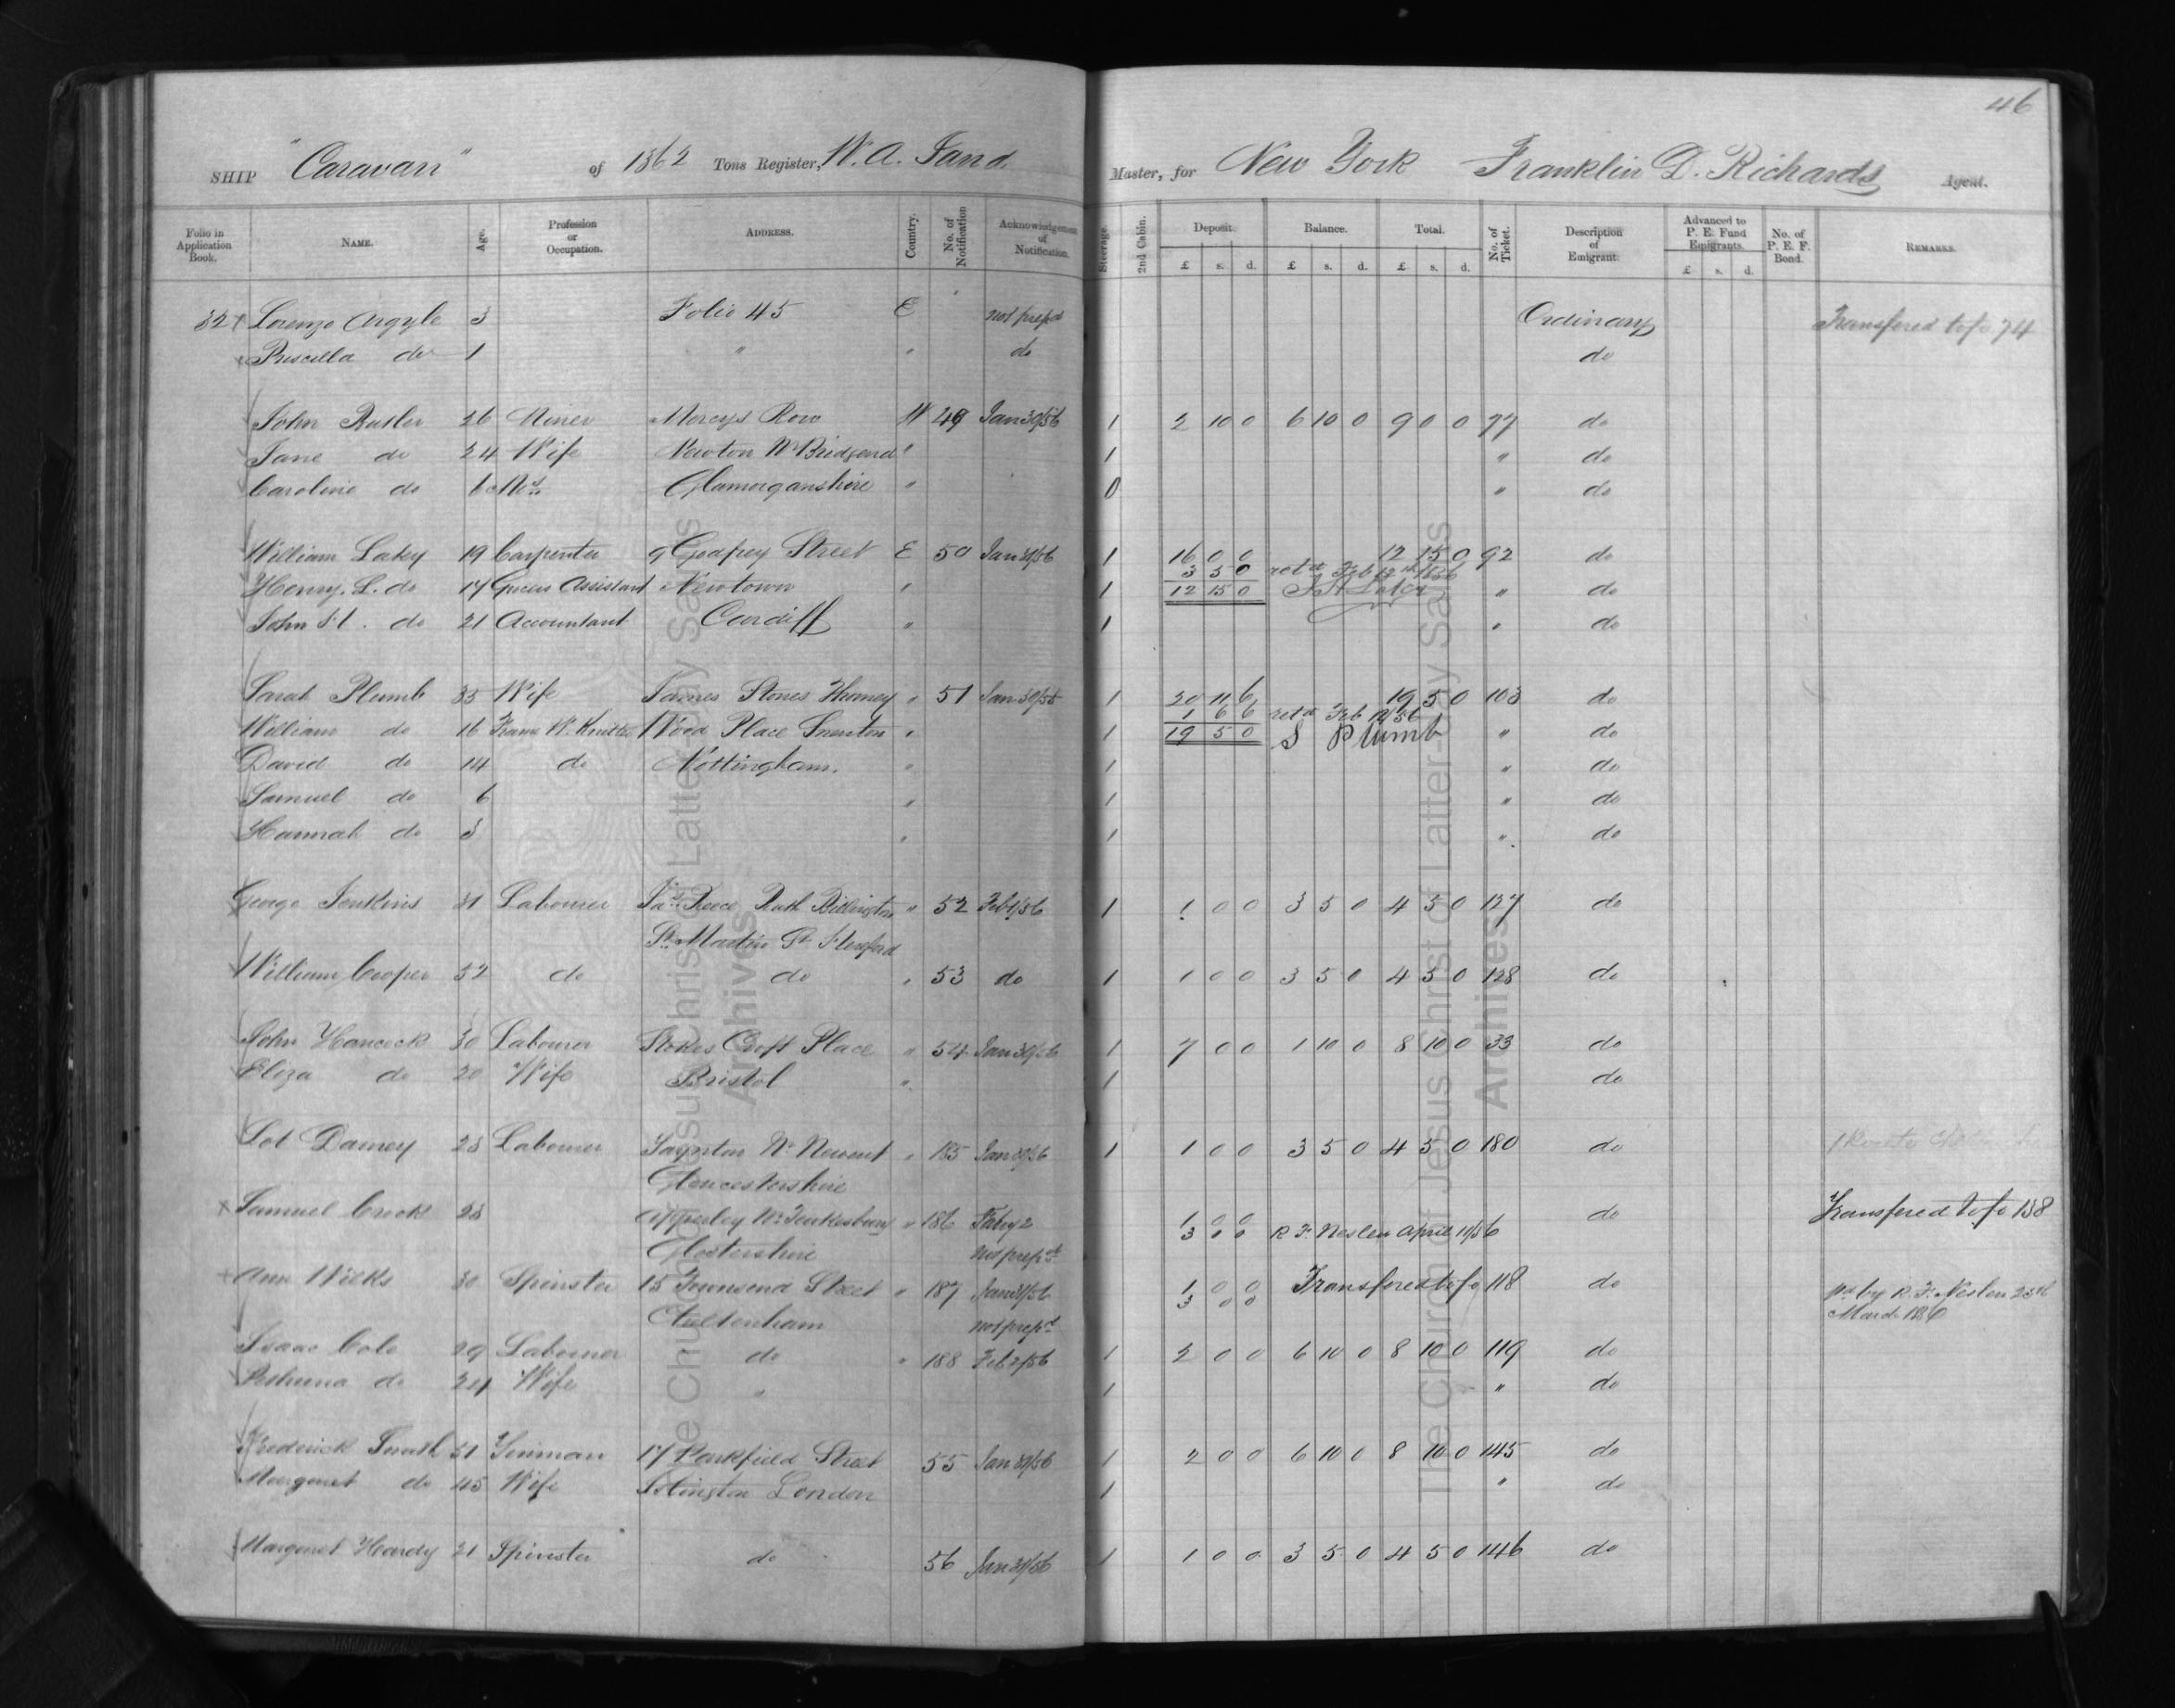 46
SHIP "Caravan" of 1362 Tons Register, W. A. Sand Master, for New York Franklin D. Richards Agent.
Folio in Application Book. NAME. Age. Profession or Occupation. ADDRESS. Country. No. of Notification Acknowledgement of Notification. Steerage. 2nd Cabin. Deposit. £ s. d. Balance. £ s. d. Total. £ s. d. No. of Ticket. Description of Emigrant. Advanced to P. E. Fund Emigrants. £ s. d. No. of P. E. F. Bond. REMARKS.
32 x Lorenzo Argyle 3 Folio 45 E not prepd Ordinary Transfered to fo 74
Priscilla do 1 " " do do
John Butler 26 Miner Mercys Row W 49 Jan 30/56 1 2 10 0 6 10 0 9 0 0 77 do
Jane do 24 Wife Newton Nr Bridgend " 1 " do
Caroline do 6 Mos Glamorganshire " 0 " do
William Lakey 19 Carpenter 9 Godfrey Street E 50 Jan 31/56 1 16 0 0 12 15 0 92 do
3 5 0 retd Feb 12th 1856
Henry. L. do 17 Grocers Assistant Newtown " 1 12 15 0 " do
John H. do 21 Accountant Cardiff " 1 " do
Sarah Plumb 35 Wife James Stones " 51 Jan 30/56 1 20 11 6 19 5 0 103 do
1 6 6 retd Feb 12/56
William do 16 Frame W. Knitter Wood Place Snenton " 1 19 5 0 S Plumb " do
David do 14 do Nottingham. " 1 " do
Samuel do 6 " 1 " do
Hannah do 3 " 1 " do
George Jenkins 31 Labourer Jas Reece Ruth Billington " 52 Feb 1/56 1 1 0 0 3 5 0 4 5 0 127 do
St. Martin St Hereford
William Cooper 52 do do " 53 do 1 1 0 0 3 5 0 4 5 0 128 do
John Hancock 30 Labourer Stokes Croft Place " 54 Jan 30/56 1 7 0 0 1 10 0 8 10 0 33 do
Eliza do 20 Wife Bristol " 1 do
Lot Damey 23 Labourer Taynton Nr Newent " 185 Jan 30/56 1 1 0 0 3 5 0 4 5 0 180 do
Gloucestershire
x Samuel Crook 23 Apperley Nr Tewkesbury " 186 Feby 2 1 0 0 do Transfered to fo 138
Glostershire not prepd 3 0 0 R. F. Neslen April 11/56
+ Ann Wicks 30 Spinster 15 Townsend Street " 187 Jan 31/56 1 0 0 Transfered to fo 118 do
Cheltenham not prepd 3 0 0 pd by R. F. Neslen 25th
March 1856
Isaac Cole 29 Labourer do " 188 Feb 2/56 1 2 0 0 6 10 0 8 10 0 119 do
do 24 Wife " 1 " do
Frederick Smith 21 17 Parkfield Street 55 Jan 30/56 1 2 0 0 6 10 0 8 10 0 145 do
Margaret do 45 Wife Islington London 1 " do
Margaret Hardy 21 Spinster do 56 Jan 31/56 1 1 0 0 3 5 0 4 5 0 146 do
The Church of Jesus Christ of Latter-day Saints
Archives
The Church of Jesus Christ of Latter-day Saints
Archives